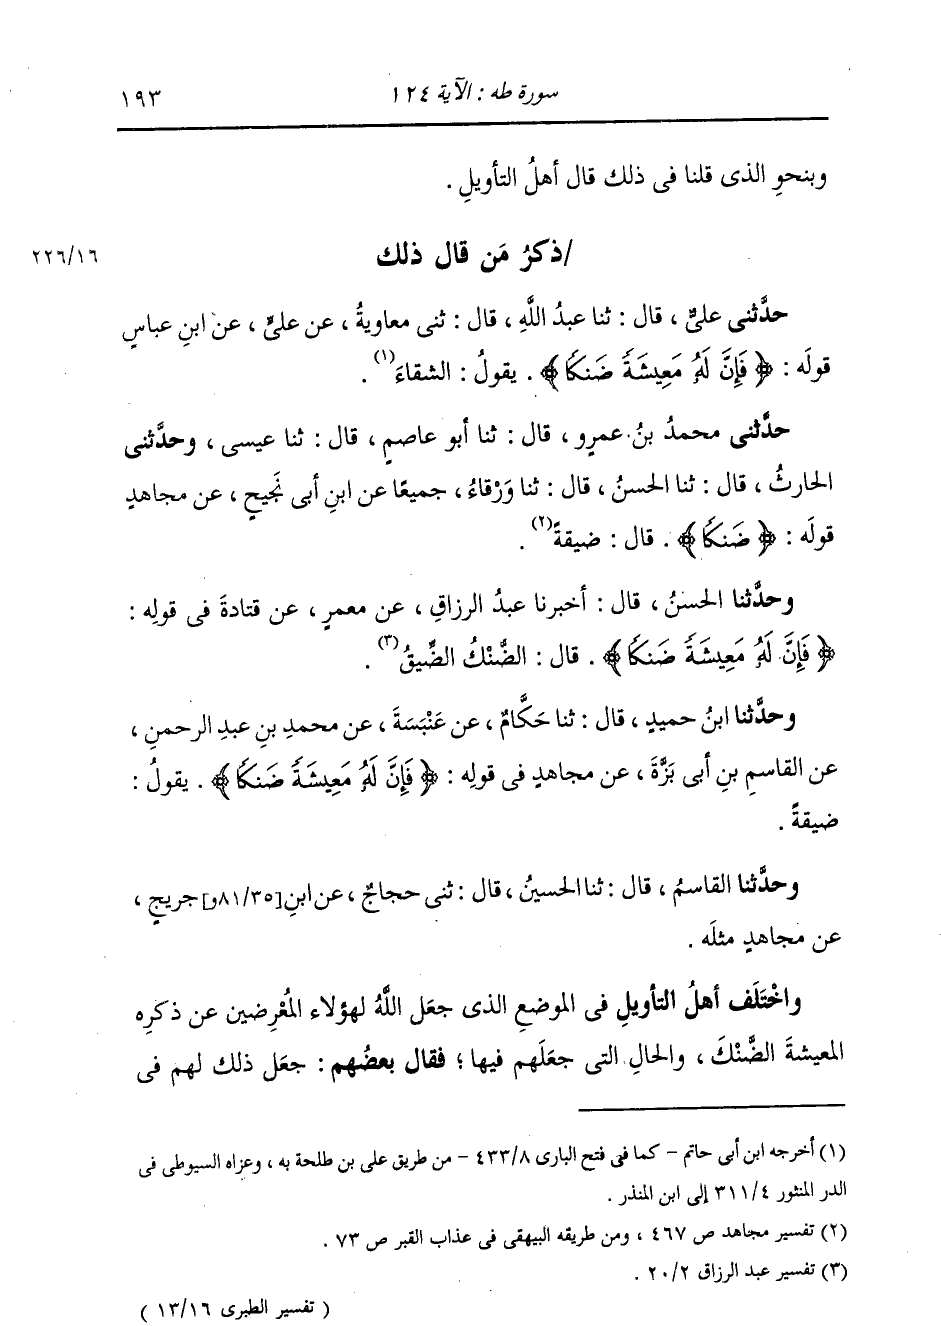 سورة طه : الآية ١٢٤ ١٩٣
وبنحوِ الذى قلنا فى ذلك قال أهلُ التأويلِ .
/ذكرُ مَن قال ذلك ٢٢٦/١٦
حدَّثنى علىٌّ ، قال : ثنا عبدُ اللَّهِ ، قال : ثنى معاويةُ ، عن علىٍّ ، عن ابنِ عباسٍ
قولَه : ﴿ فَإِنَّ لَهُ مَعِيشَةً ضَنكًا ﴾ . يقولُ : الشقاءَ(١) .
حدَّثنى محمدُ بنُ عمرٍو ، قال : ثنا أبو عاصمٍ ، قال : ثنا عيسى ، وحدَّثنى
الحارثُ ، قال : ثنا الحسنُ ، قال : ثنا وَرْقاءُ ، جميعًا عن ابنِ أبى نَجيحٍ ، عن مجاهدٍ
قولَه : ﴿ ضَنكًا ﴾ . قال : ضيقةً(٢) .
وحدَّثنا الحسنُ ، قال : أخبرنا عبدُ الرزاقِ ، عن معمرٍ ، عن قتادةَ فى قولِه :
﴿ فَإِنَّ لَهُ مَعِيشَةً ضَنكًا ﴾ . قال : الضَّنْكُ الضَّيقُ(٣) .
وحدَّثنا ابنُ حميدٍ ، قال : ثنا حَكَّامٌ ، عن عَنْبَسَةَ ، عن محمدِ بنِ عبدِ الرحمنِ ،
عن القاسمِ بنِ أبى بَزَّةَ ، عن مجاهدٍ فى قولِه : ﴿ فَإِنَّ لَهُ مَعِيشَةً ضَنكًا ﴾ . يقولُ :
ضيقةً .
وحدَّثنا القاسمُ ، قال : ثنا الحسينُ ، قال : ثنى حجاجٌ ، عن ابنِ [٨١/٣٥و] جريجٍ ،
عن مجاهدٍ مثلَه .
واخْتَلَف أهلُ التأويلِ فى الموضعِ الذى جعَل اللَّهُ لهؤلاء المُعْرِضين عن ذكرِه
المعيشةَ الضَّنْكَ ، والحالِ التى جعَلَهم فيها ؛ فقال بعضُهم : جعَل ذلك لهم فى
(١) أخرجه ابن أبى حاتم - كما فى فتح البارى ٤٣٣/٨ - من طريق على بن طلحة به ، وعزاه السيوطى فى
الدر المنثور ٣١١/٤ إلى ابن المنذر .
(٢) تفسير مجاهد ص ٤٦٧ ، ومن طريقه البيهقى فى عذاب القبر ص ٧٣ .
(٣) تفسير عبد الرزاق ٢٠/٢ .
( تفسير الطبرى ١٣/١٦ )